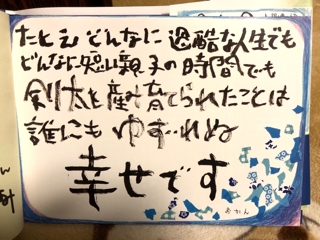 たとえどんなに過酷な人生でも
どんなに短い親子の時間でも
剣太を産み育てられたことは
誰にもゆずれぬ
幸せです
おかん